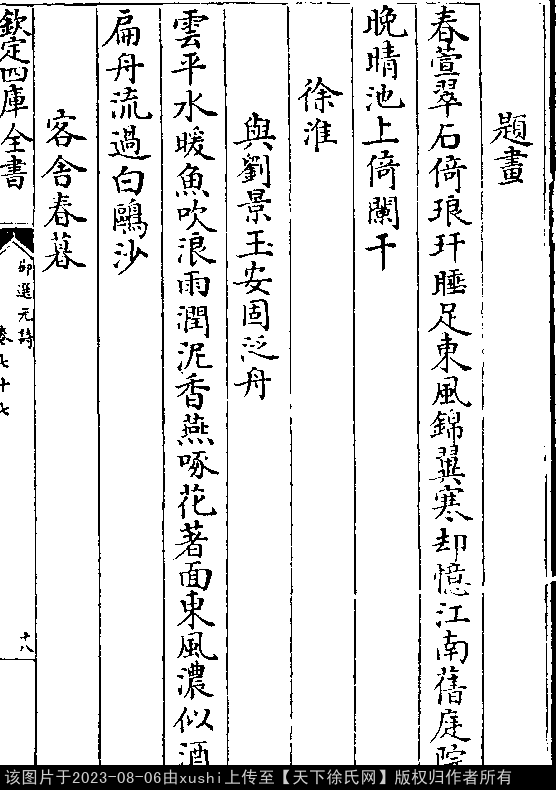 題畫
春萱翠石倚琅玕睡足東風錦翼寒却憶江南舊庭院
晚晴池上倚闌干
徐淮
與劉景玉安固泛舟
雲平水暖魚吹浪雨潤泥香燕啄花著面東風濃似酒
扁舟流過白鷗沙
客舍春暮
欽定四庫全書
御選元詩
卷七十七
十八
该图片于2023-08-06由xushi上传至【天下徐氏网】版权归作者所有